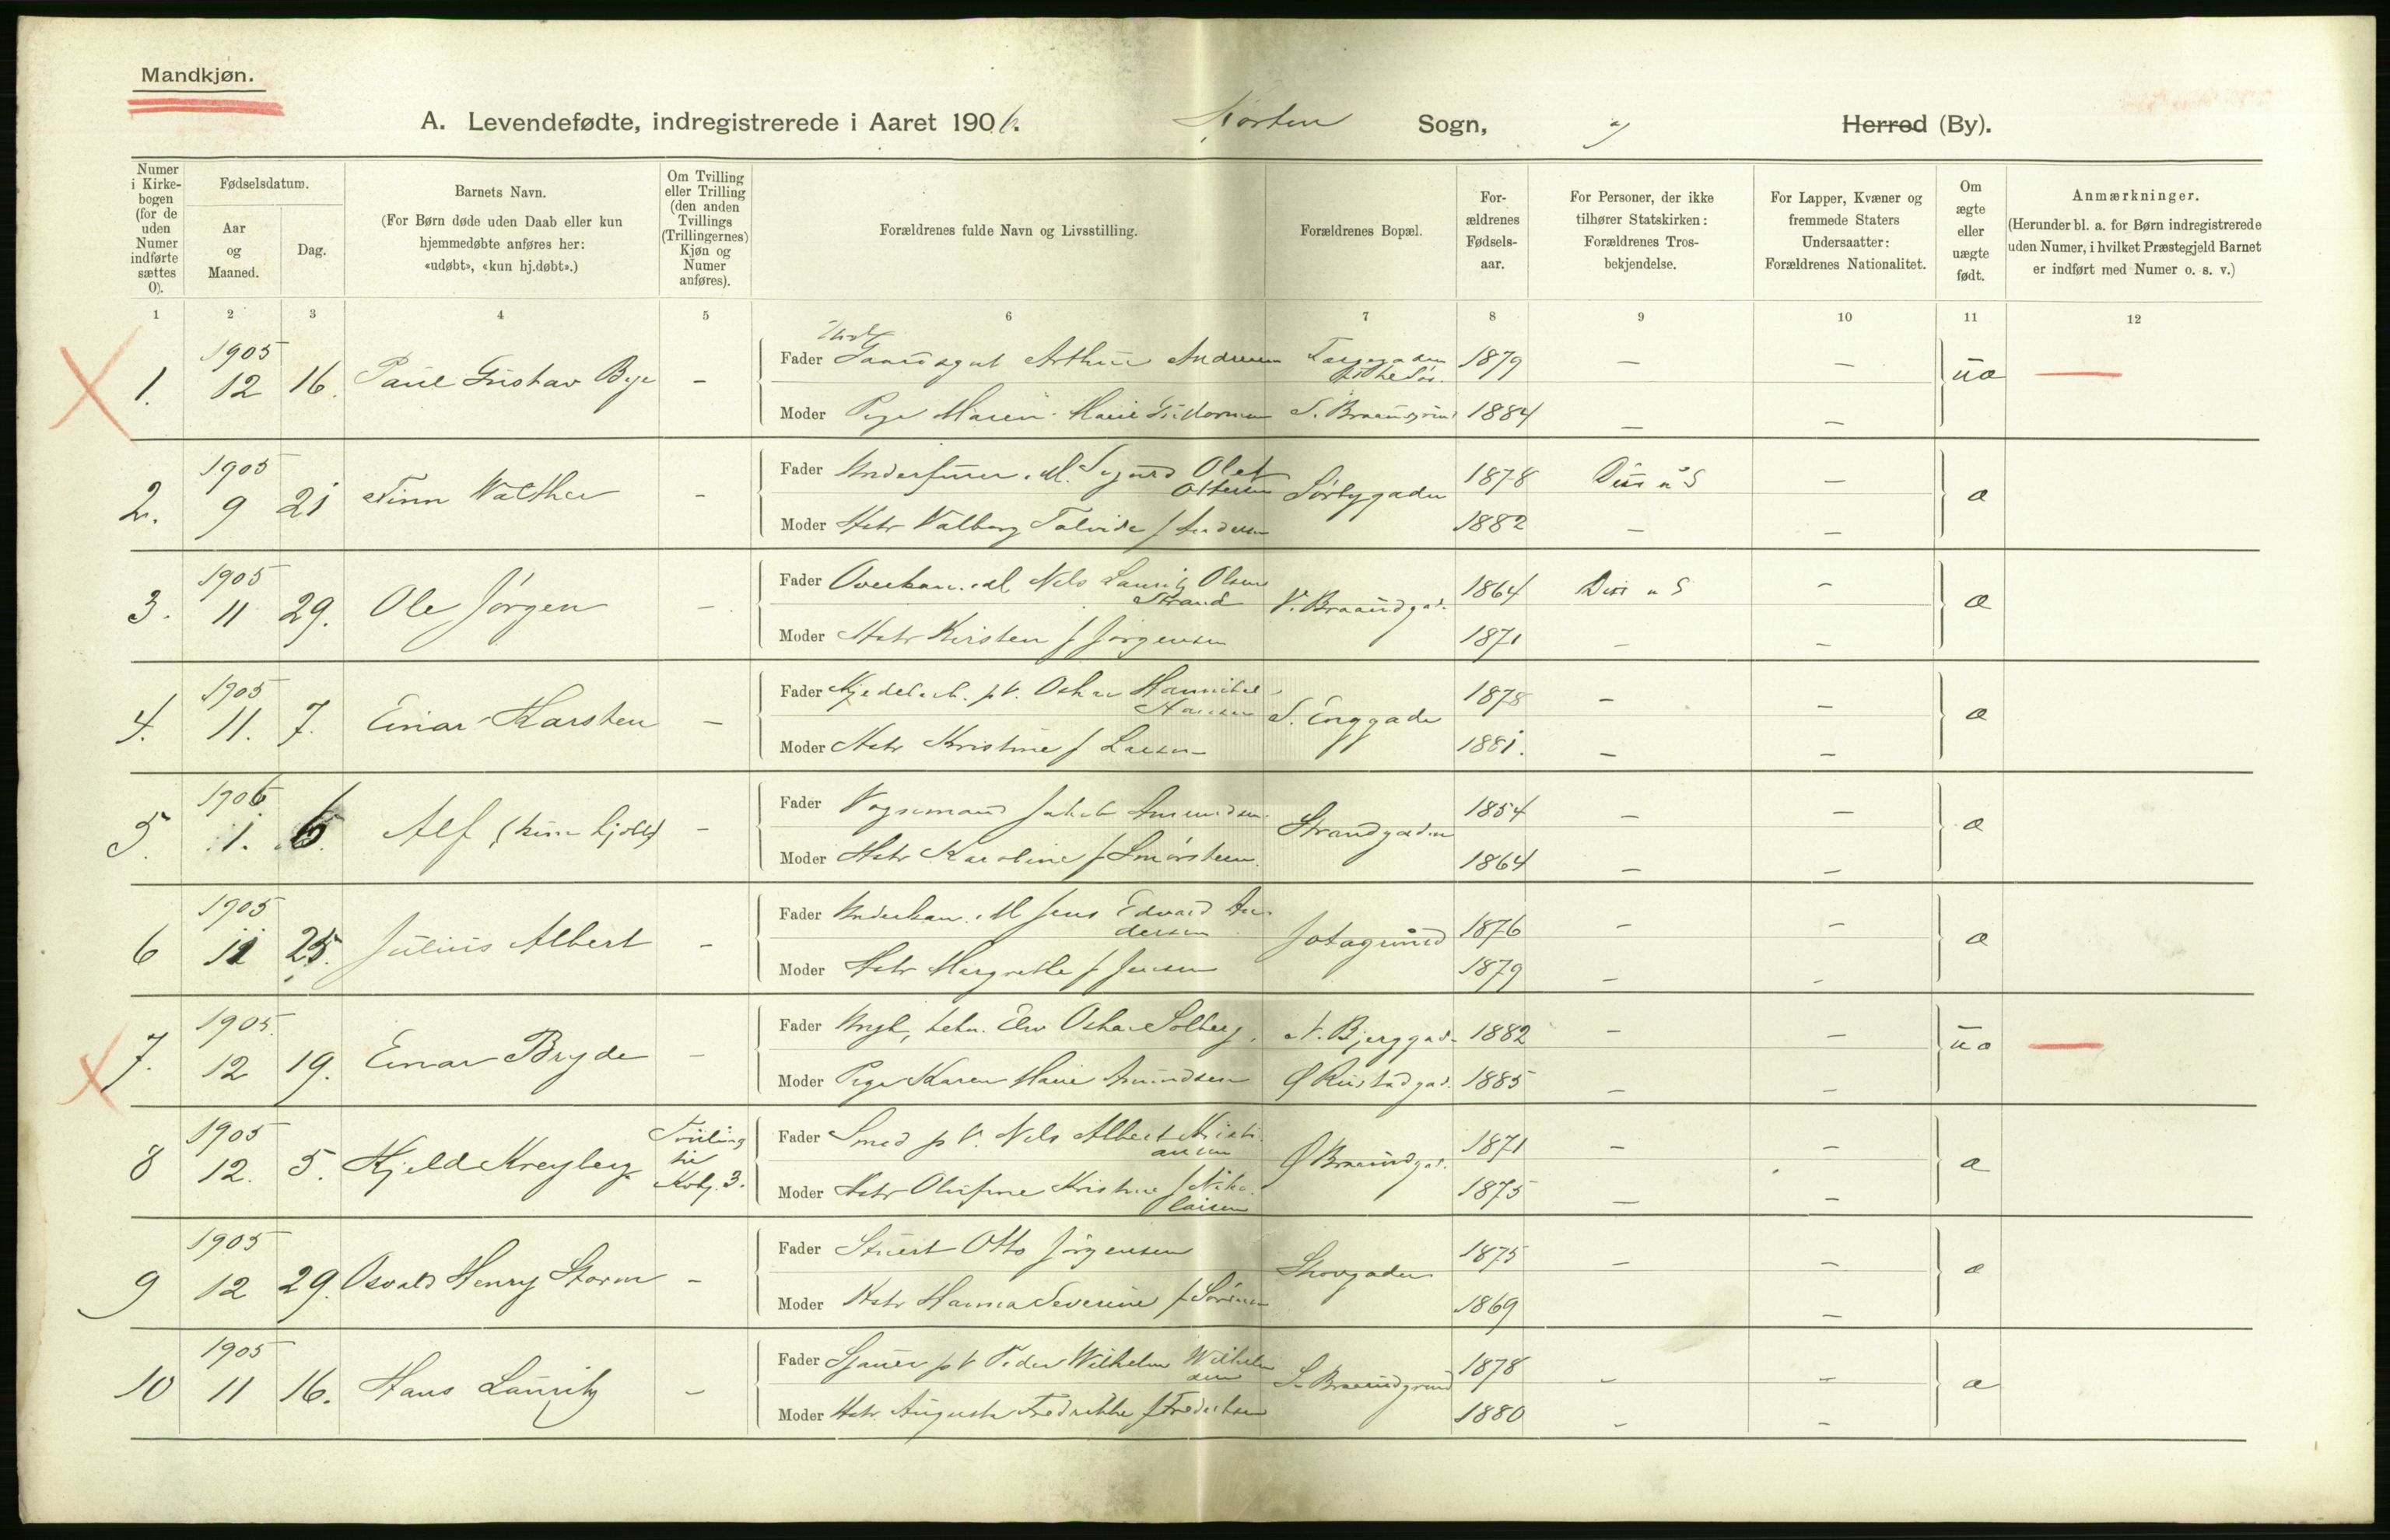 Mandkjøn.
A. Levendefødte, indregistrerede i Aaret 1906. Horten Sogn, Herred (By).
Numer i Kirkebogen (for de uden Numer indførte sættes 0).
Fødselsdatum.
Aar og Maaned.
Dag.
Barnets Navn.
(For Børn døde uden Daab eller kun hjemmedøbte anføres her: «udøbt», «kun hj.døbt».)
Om Tvilling eller Trilling (den anden Tvillings (Trillingernes) Kjøn og Numer anføres).
Forældrenes fulde Navn og Livsstilling.
Forældrenes Bopæl.
Forældrenes Fødselsaar.
For Personer, der ikke tilhører Statskirken: Forældrenes Trosbekjendelse.
For Lapper, Kvæner og fremmede Staters Undersaatter: Forældrenes Nationalitet.
Om ægte eller uægte født.
Anmærkninger.
(Herunder bl. a. for Børn indregistrerede uden Numer, i hvilket Præstegjeld Barnet er indført med Numer o. s. v.)
1 2 3 4 5 6 7 8 9 10 11 12
1. 1905 12 16. Paul Gustav Bye –
Fader Arthur Andresen 1879 – – uæ
Moder Pige Maren Marie S. Braarudgrund 1884 – –
2. 1905 9 21 Finn Walther –
Fader Sigurd Olaf Ottersen Sørbygaden 1878 Diss – æ
Moder Hstr Valborg f Andersen 1882 – –
3. 1905 11 29. Ole Jørgen –
Fader Nils Lauritz Olsen Strand V. Braarudgad. 1864 Diss – æ
Moder Hstr Kirsten f Jørgensen 1871 – –
4. 1905 11. 7. Einar Karsten –
Fader p V. Oskar Hannibal Hansen S. Enggade 1878 – – æ
Moder Hstr Kristine f Larsen 1881. – –
5. 1906 1. 6. Alf (kun hjdbt) –
Fader Vognmand Jakob Amundsen Strandgaden 1854 – – æ
Moder Hstr Karoline f Smørsteen 1864 – –
6 1905 11 25. Julius Albert –
Fader Jens Edvard Andersen 1876 – – æ
Moder Hstr Margrethe f Jensen 1879 – –
7. 1905. 12 19. Einar Bryde –
Fader Oskar Solberg. N. Bjerggad. 1882 – – uæ
Moder Pige Karen Marie Amundsen Ø Rustadgad. 1885 – –
8 1905 12. 5. Kjeld Kreyberg Tvilling til Kvkj. 3.
Fader Smed p V. Nils Albert Kristiansen Ø Braarudgad. 1871 – – æ
Moder Hstr Olufine Kristine f Nikolaisen 1875 – –
9 1905 12 29. Osvald Henry Storm –
Fader Stuert Otto Jørgensen Skovgaden 1875 – – æ
Moder Hstr Hanna Severine f Sørensen 1869 –
10 1905 11 16. Hans Lauritz –
Fader Sjauer p V Peder Wilhelm Wilhelmsen S. Braarudgrund 1878 – – æ
Moder Hstr. Augusta Fredrikke f Fredriksen 1880 – –